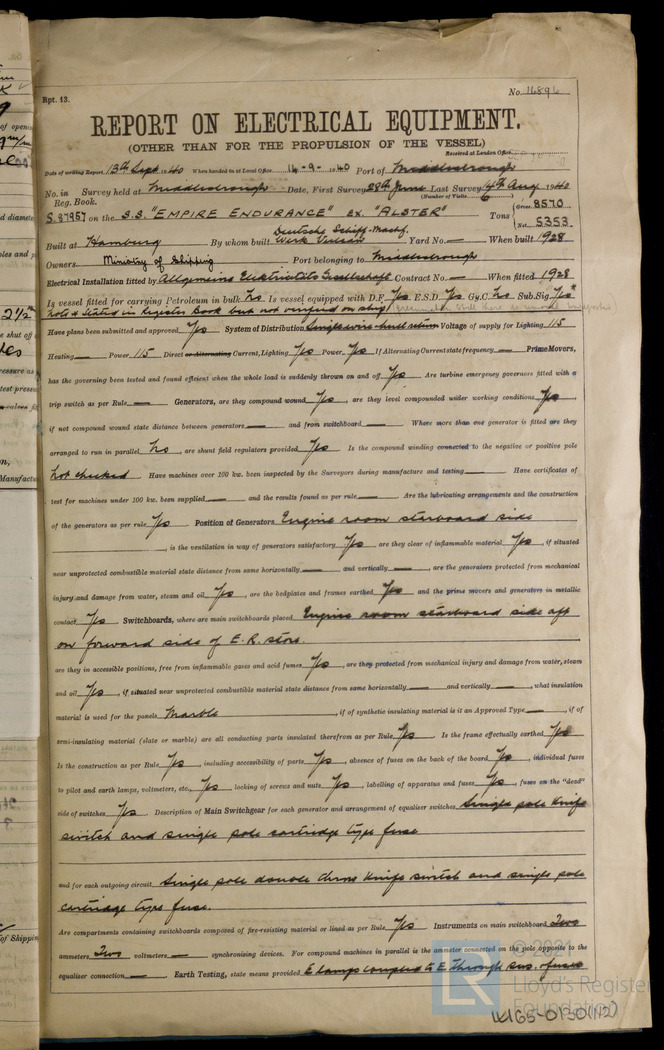 Rpt. 13.
No. 16896
REPORT ON ELECTRICAL EQUIPMENT.
(OTHER THAN FOR THE PROPULSION OF THE VESSEL)
Received at London Office
Date of writing Report 13th Sept 1940 When handed in at Local Office 14-9-1940 Port of Middlesbrough
No. in Survey held at Middlesbrough Date, First Survey 28th June Last Survey 14th Aug 1940
Reg. Book. (Number of Visits 6)
S.87957 on the S.S. "EMPIRE ENDURANCE" ex. "ALSTER" Tons { Gross 8570
Net 5353
Built at Hamburg By whom built Deutsche Schiff-Masch. Werk Vulcan Yard No. — When built 1928
Owners Ministry of Shipping Port belonging to Middlesbrough
Electrical Installation fitted by Allgemeine Elektricitats Gesellschaft Contract No. — When fitted 1928
Is vessel fitted for carrying Petroleum in bulk No Is vessel equipped with D.F. Yes E.S.D. Yes Gy.C. No Sub.Sig. Yes*
note * Stated in Register Book but not verified on ship
Have plans been submitted and approved Yes System of Distribution Single wire hull return Voltage of supply for Lighting 115
Heating — Power 115 Direct or Alternating Current, Lighting Yes Power Yes If Alternating Current state frequency — Prime Movers,
has the governing been tested and found efficient when the whole load is suddenly thrown on and off Yes Are turbine emergency governors fitted with a
trip switch as per Rule — Generators, are they compound wound Yes, are they level compounded under working conditions Yes,
if not compound wound state distance between generators — and from switchboard — Where more than one generator is fitted are they
arranged to run in parallel No, are shunt field regulators provided Yes Is the compound winding connected to the negative or positive pole
Not checked Have machines over 100 kw. been inspected by the Surveyors during manufacture and testing — Have certificates of
test for machines under 100 kw. been supplied — and the results found as per rule — Are the lubricating arrangements and the construction
of the generators as per rule Yes Position of Generators Engine room starboard side
, is the ventilation in way of generators satisfactory Yes, are they clear of inflammable material Yes, if situated
near unprotected combustible material state distance from same horizontally — and vertically —, are the generators protected from mechanical
injury and damage from water, steam and oil Yes, are the bedplates and frames earthed Yes and the prime movers and generators in metallic
contact Yes Switchboards, where are main switchboards placed Engine room starboard side aft
on forward side of E.R. store.
are they in accessible positions, free from inflammable gases and acid fumes Yes, are they protected from mechanical injury and damage from water, steam
and oil Yes, if situated near unprotected combustible material state distance from same horizontally — and vertically —, what insulation
material is used for the panels Marble, if of synthetic insulating material is it an Approved Type —, if of
semi-insulating material (slate or marble) are all conducting parts insulated therefrom as per Rule Yes Is the frame effectually earthed Yes
Is the construction as per Rule Yes, including accessibility of parts Yes, absence of fuses on the back of the board Yes, individual fuses
to pilot and earth lamps, voltmeters, etc., Yes locking of screws and nuts Yes, labelling of apparatus and fuses Yes, fuses on the "dead"
side of switches Yes. Description of Main Switchgear for each generator and arrangement of equaliser switches Single pole knife
switch and single pole cartridge type fuse
and for each outgoing circuit Single pole double throw knife switch and single pole
cartridge type fuse.
Are compartments containing switchboards composed of fire-resisting material or lined as per Rule Yes Instruments on main switchboard Two
ammeters Two voltmeters — synchronising devices. For compound machines in parallel is the ammeter connected on the pole opposite to the
equaliser connection — Earth Testing, state means provided E lamps coupled to E. through sws. & fuses
© 2021
LR
Lloyd's Register
Foundation
W165-0130(1/2)